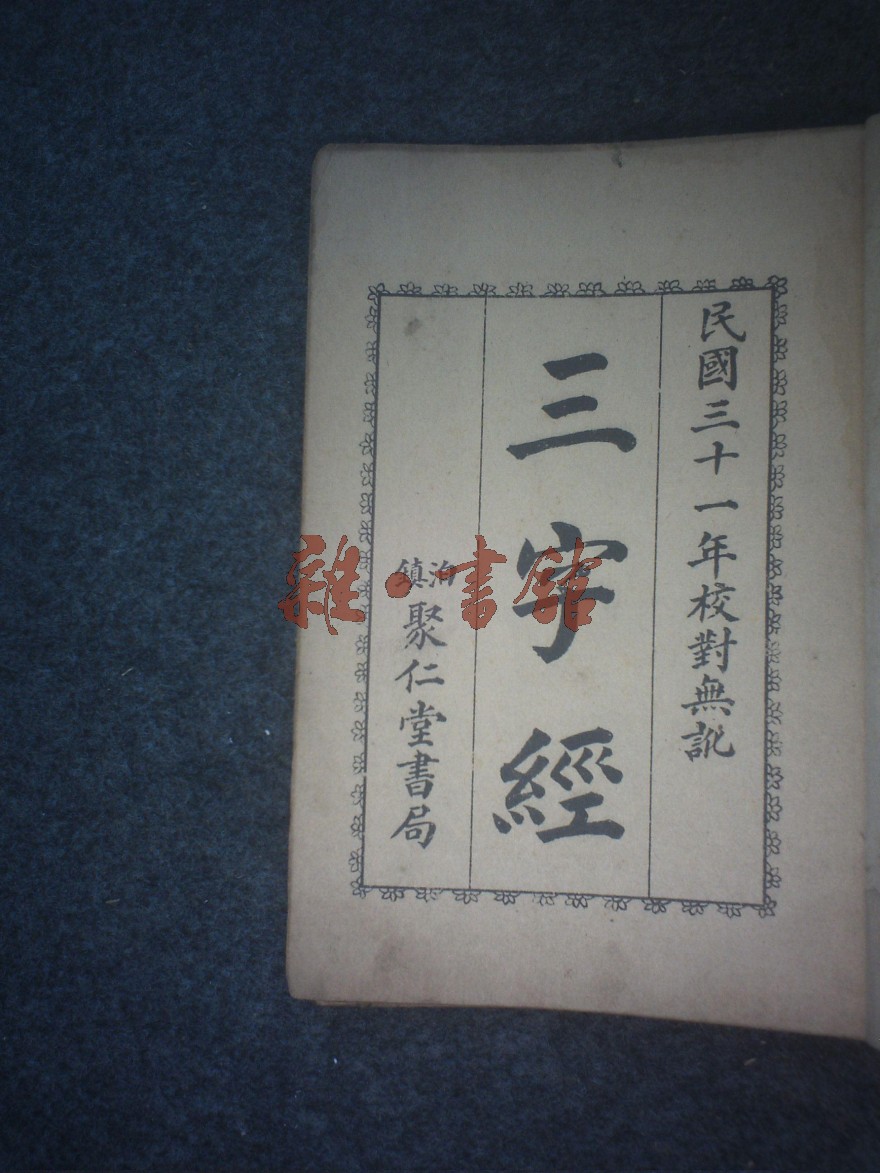 民國三十一年校對無訛
三字經
泊鎮
聚仁堂書局
雜·書館